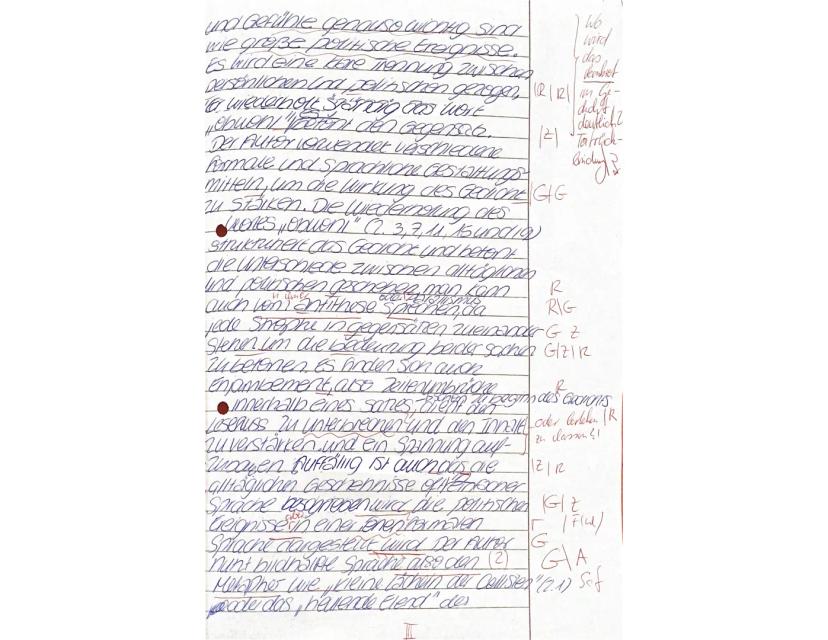 und Gefühle genauso wichtig sind
wie große politische Ereignisse.
Es wird eine klare Trennung zwischen
persönlichen und politischen gezogen,
Er wiederholt ständig das Wort
„obwohl" betont den Gegensatz.
Der Autor verwendet verschiedene
formale und sprachliche Gestaltungs-
mitteln, um die Wirkung des Gedicht
zu stärken. Die Wiederholung des
Wortes „obwohl" (Z. 3,7,11,15 und 19)
strukturiert das Gedicht und betont
die Unterschiede zwischen alltäglichen
und politischen geschehen, man kann
auch von Antithese sprechen, da
jede Strophe in gegensätzen zueinander
stehen um die Bedeutung beider sachen
zu betonen. Es finden sich auch
Enjambement, also Zeilenumbrüche
zu beginn des Gedichts
innerhalb eines satzes, dient den
Lesefluss zu unterbrechen und den Inhalt
zu verstärken und ein Spannung auf-
zubauen. Auffällig ist auch das die
alltäglichen Geschehnisse
Sprache beschrieben wird die politischen
Ereignisse in einer formalen
Sprache dargestellt wird. Der Autor
nutzt bildhafte Sprache also den
Metapher wie „kleine Lächeln der" (Z. 1)
oder das „heulende Elend" des
Wo
wird
das
konkret
im Ge-
dicht
deutlich?
|R|R|
|Z|
|G|G
R
R|G
G Z
G|Z|R
R
oder Verstehen |R
zu lassen
|Z|R
|G|Z
G
G|A
(2)
III